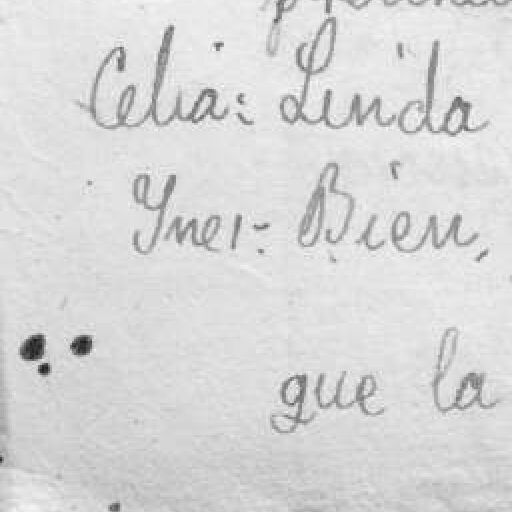 Celia: Linda
Ynes:- Bien,
que la